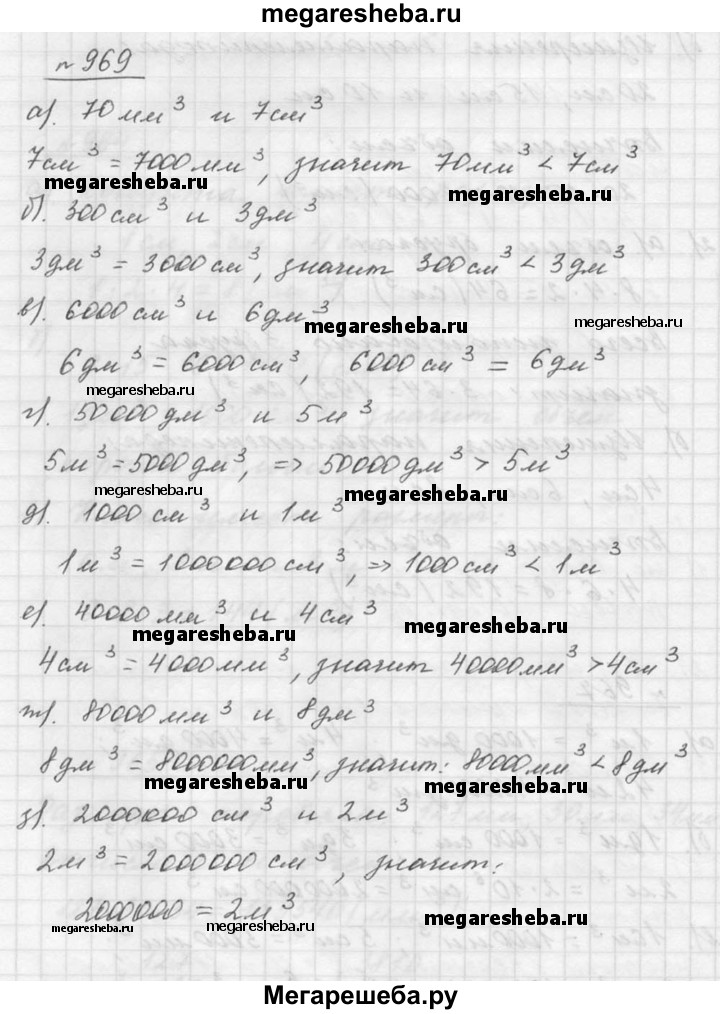 megaresheba.ru
№ 969
а). 70 мм³ и 7см³
7см³ = 7000 мм³, значит 70 мм³ < 7 см³
megaresheba.ru megaresheba.ru
б). 300 см³ и 3 дм³
3 дм³ = 3000 см³, значит 300 см³ < 3 дм³
в). 6000 см³ и 6 дм³
megaresheba.ru megaresheba.ru
6 дм³ = 6000 см³, 6000 см³ = 6 дм³
megaresheba.ru
г). 50000 дм³ и 5 м³
5 м³ = 5000 дм³, => 50000 дм³ > 5 м³
megaresheba.ru megaresheba.ru
д). 1000 см³ и 1 м³
1 м³ = 1000000 см³, => 1000 см³ < 1 м³
е). 40000 мм³ и 4 см³
megaresheba.ru megaresheba.ru
4 см³ = 4000 мм³, значит 40000 мм³ > 4 см³
ж). 80000 мм³ и 8 дм³
8 дм³ = 8000000 мм³, значит: 80000 мм³ < 8 дм³
megaresheba.ru megaresheba.ru
з). 2000000 см³ и 2 м³
2 м³ = 2000000 см³, значит:
2000000 = 2 м³
megaresheba.ru megaresheba.ru megaresheba.ru
Мегарешеба.ру